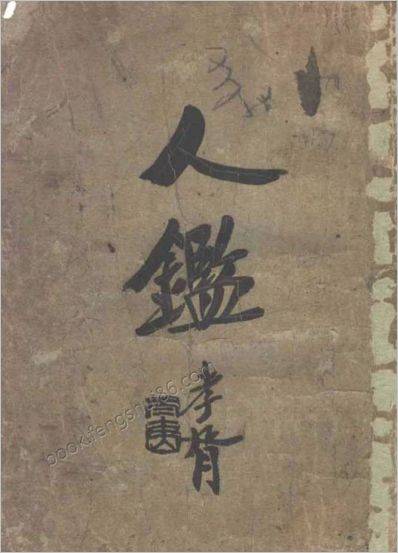 人鑑
孝胥
book.ifengshui86.com